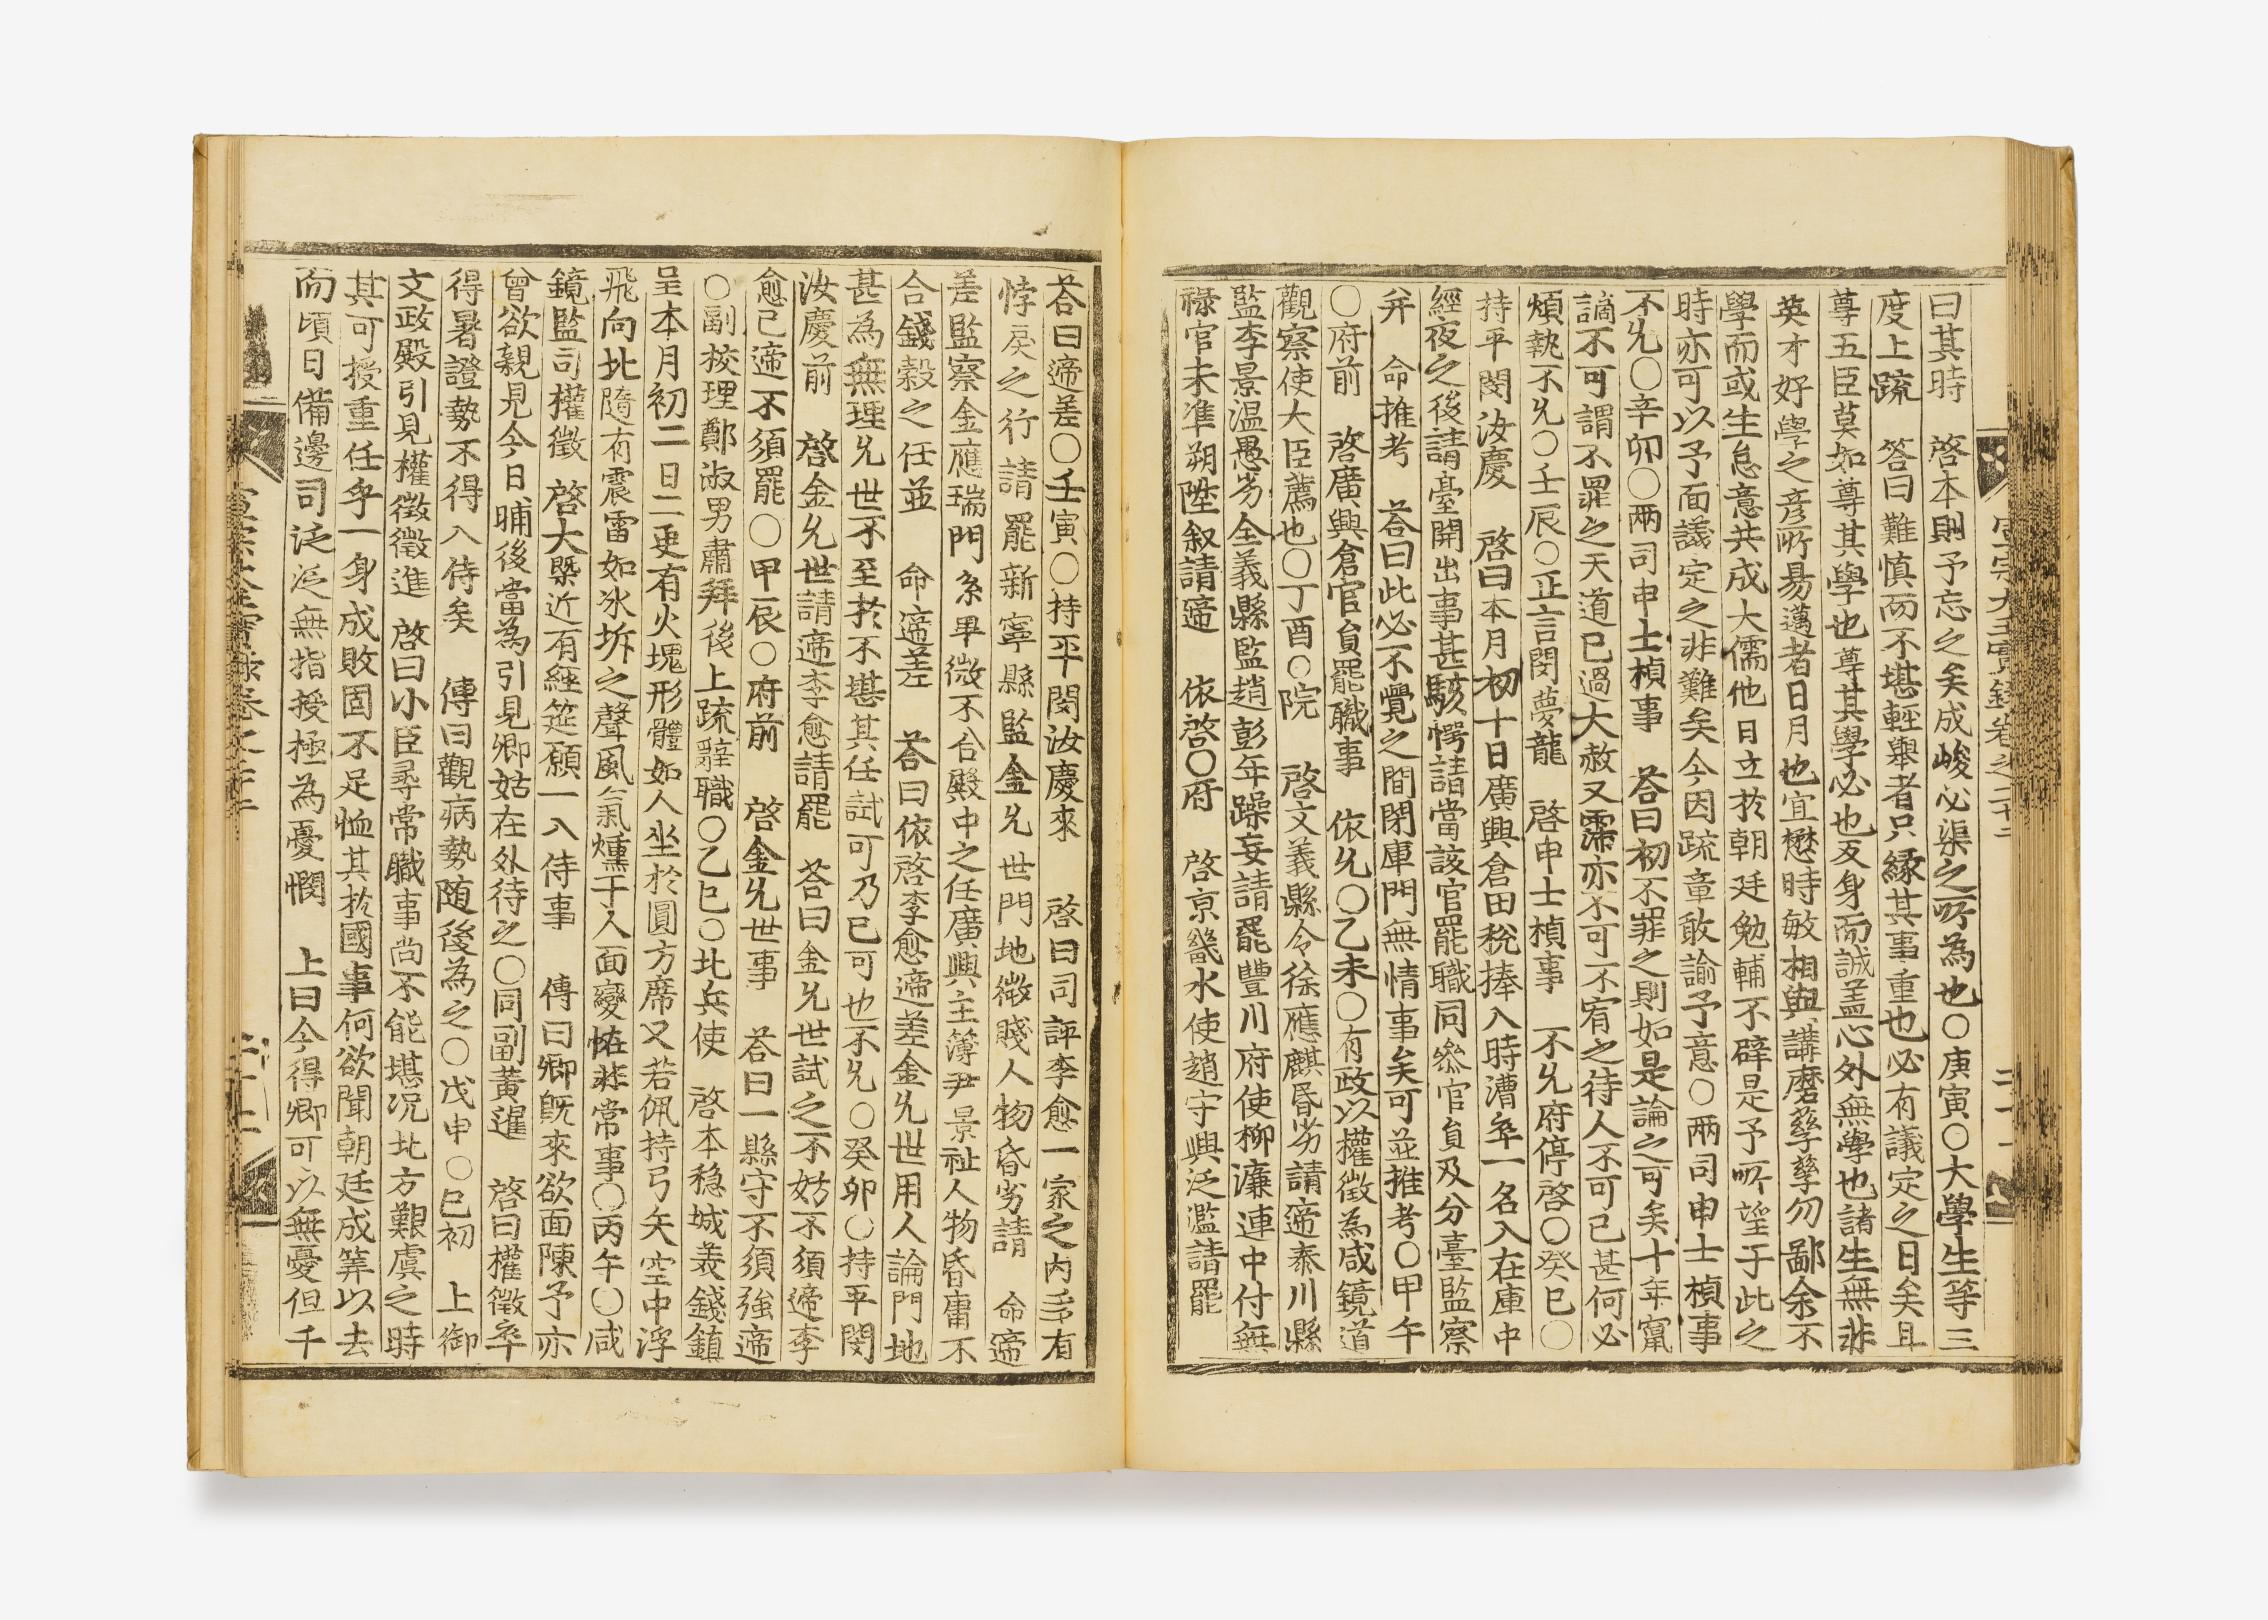 曰其時　啓本則予忘之矣成峻必渠之所為也○庚寅○大學生等三
度上疏　答曰難慎而不堪輕舉者只緣其事重也必有議定之日矣且
尊五臣莫如尊其學也尊其學必也反身而誠盖心外無學也諸生無非
英才好學之彦所易邁者日月也宜懋時敏相與講磨孳孳勿鄙余不
學而或生怠意共成大儒他日立於朝廷勉輔不辟是予所望于此之
時亦可以予面議定之非難矣今因疏章敢諭予意○兩司申士楨事
不允○辛卯○兩司申士楨事　荅曰初不罪之則如是論之可矣十年竄
謫不可謂不罪之天道已過大赦又霈亦不可不宥之待人不可已甚何必
煩執不允○壬辰○正言閔夢龍　啓申士楨事　不允府停啓○癸巳○
持平閔汝慶　啓曰本月初十日廣興倉田稅捧入時漕卒一名入在庫中
經夜之後請臺開出事甚駭愕請當該官罷職同參官員及分臺監察
并　命推考　荅曰此必不覺之間閉庫門無情事矣可並推考○甲午
○府前　啓廣興倉官員罷職事　依允○乙未○有政以權徵為咸鏡道
觀察使大臣薦也○丁酉○院　啓文義縣令徐應麒昏劣請遆泰川縣
監李景温愚劣全義縣監趙彭年躁妄請罷豐川府使柳濂連中付無
祿官未准朔陞叙請遆　依啓○府　啓京畿水使趙守興泛濫請罷
荅曰遆差○壬寅○持平閔汝慶來　啓曰司評李愈一家之內多有
悖戾之行請罷新寧縣監金允世門地微賤人物昏劣請　命遆
差監察金應瑞門系卑微不合殿中之任廣興主簿尹景祉人物昏庸不
合錢穀之任並　命遆差　荅曰依啓李愈遆差金允世用人論門地
甚為無理允世不至於不堪其任試可乃已可也不允○癸卯○持平閔
汝慶前　啓金允世請遆李愈請罷　荅曰金允世試之不妨不須遆李
愈已遆不須罷○甲辰○府前　啓金允世事　荅曰一縣守不須強遆
○副校理鄭淑男肅拜後上疏辭職○乙巳○北兵使　啓本穏城美錢鎮
呈本月初二日二更有火塊形體如人坐於圓方席又若佩持弓矢空中浮
飛向北隨有震雷如氷坼之聲風氣燻于人面變恠非常事○丙午○咸
鏡監司權徵　啓大槩近有經筵願一入侍事　傳曰卿旣來欲面陳予亦
曾欲親見今日晡後當為引見卿姑在外待之○同副黃暹　啓曰權徵卒
得暑證勢不得入侍矣　傳曰觀病勢随後為之○戊申○巳初　上御
文政殿引見權徵徵進　啓曰小臣尋常職事尚不能堪况北方艱虞之時
其可授重任乎一身成敗固不足恤其於國事何欲聞朝廷成筭以去
而頃日備邊司泛泛無指授極為憂憫　上曰今得卿可以無憂但千